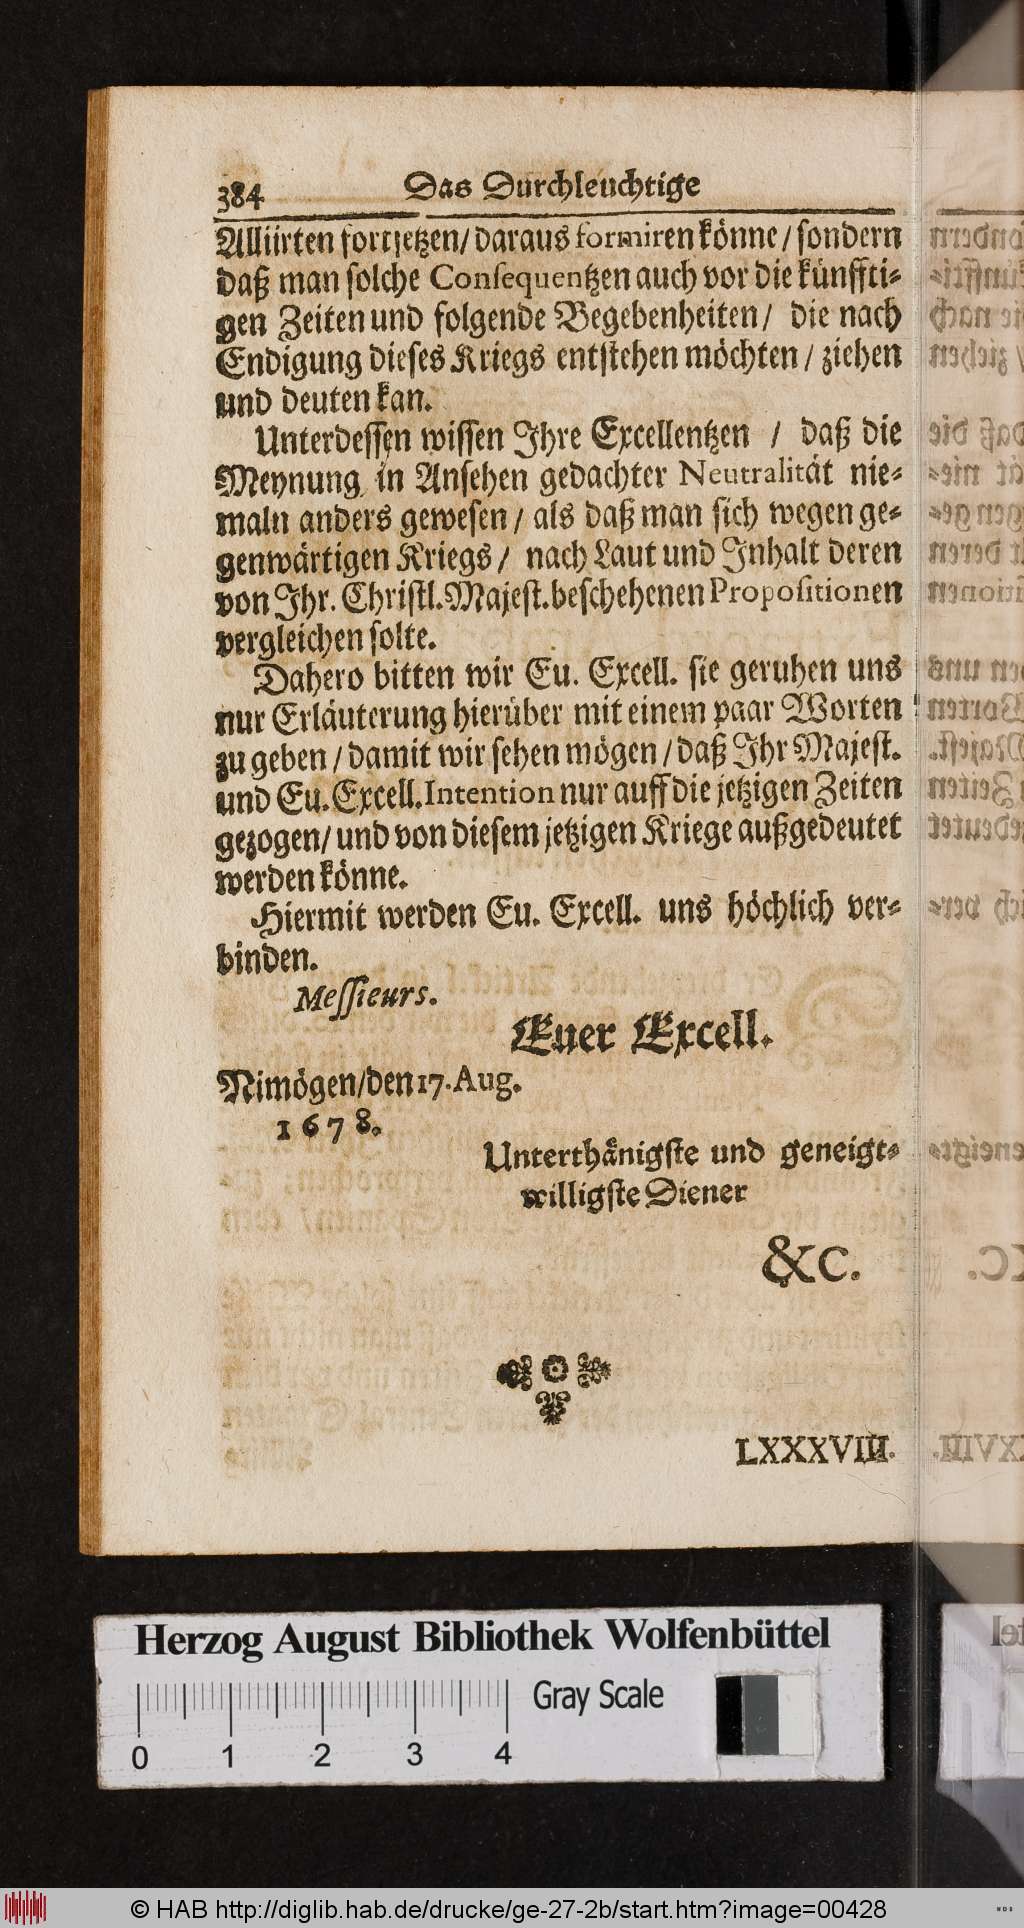 384 Das Durchleuchtige
Alliirten fortsetzen/ daraus formiren könne/ sondern
daß man solche Consequentzen auch vor die künffti-
gen Zeiten und folgende Begebenheiten/ die nach
Endigung dieses Kriegs entstehen möchten/ ziehen
und deuten kan.
Unterdessen wissen Ihre Excellentzen / daß die
Meynung in Ansehen gedachter Neutralität nie-
maln anders gewesen/ als daß man sich wegen ge-
genwärtigen Kriegs/ nach Laut und Inhalt deren
von Ihr. Christl. Majest. beschehenen Propositionen
vergleichen solte.
Dahero bitten wir Eu. Excell. sie geruhen uns
nur Erläuterung hierüber mit einem paar Worten
zu geben/ damit wir sehen mögen/ daß Ihr Majest.
und Eu. Excell. Intention nur auff die jetzigen Zeiten
gezogen/ und von diesem jetzigen Kriege außgedeutet
werden könne.
Hiermit werden Eu. Excell. uns höchlich ver-
binden.
Messieurs.
Euer Excell.
Nimögen/den 17. Aug.
1678.
Unterthänigste und geneigt-
willigste Diener
&c.
LXXXVIII.
Herzog August Bibliothek Wolfenbüttel
Gray Scale
0 1 2 3 4
© HAB http://diglib.hab.de/drucke/ge-27-2b/start.htm?image=00428